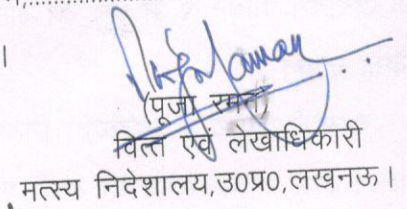 ।
(पूजा रमन)
वित्त एवं लेखाधिकारी
मत्स्य निदेशालय,उ0प्र0,लखनऊ।